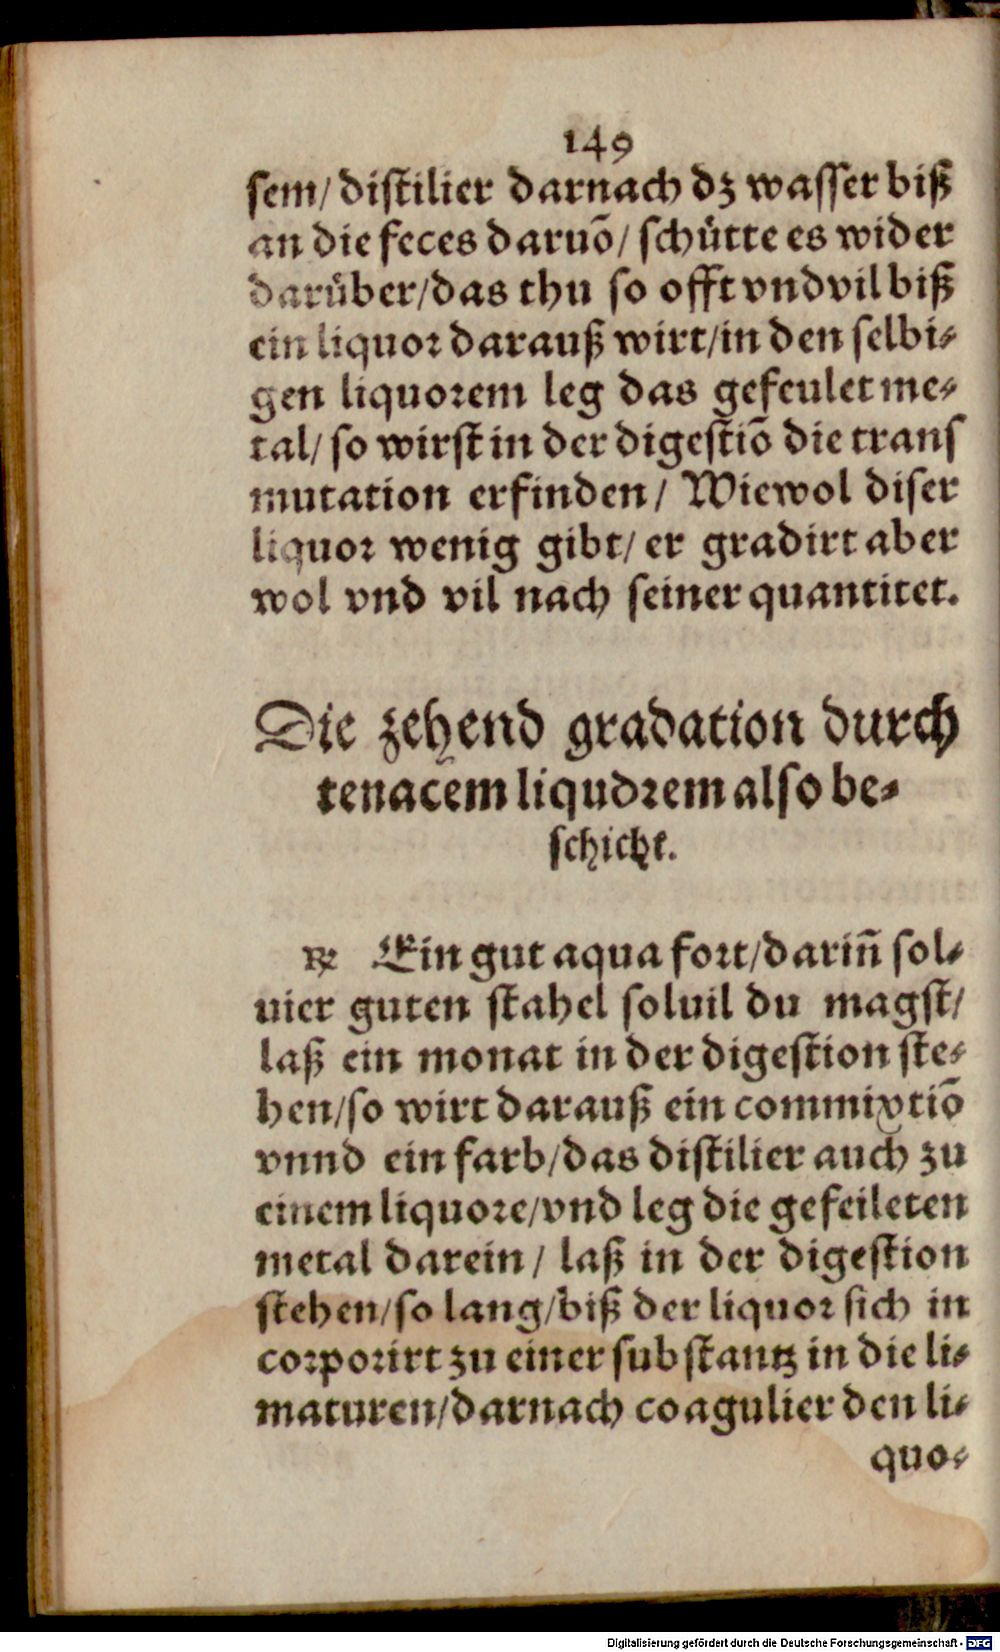 149
sem/ distilier darnach dz wasser biß
an die feces daruõ/ schütte es wider
darüber/das thu so offt vnd vil biß
ein liquor darauß wirt/in den selbi-
gen liquorem leg das gefeulet me-
tal/ so wirst in der digestiõ die trans
mutation erfinden/ Wiewol diser
liquor wenig gibt/ er gradirt aber
wol vnd vil nach seiner quantitet.
Die zehend gradation durch
tenacem liquorem also be-
schicht.
℞ Ein gut aqua fort/darin̄ sol-
uier guten stahel souil du magst/
laß ein monat in der digestion ste-
hen/so wirt darauß ein commixtiõ
vnnd ein farb/das distilier auch zu
einem liquore/vnd leg die gefeileten
metal darein/ laß in der digestion
stehen/so lang/biß der liquor sich in
corporirt zu einer substantz in die li-
maturen/darnach coagulier den li-
quo-
Digitalisierung gefördert durch die Deutsche Forschungsgemeinschaft - DFG